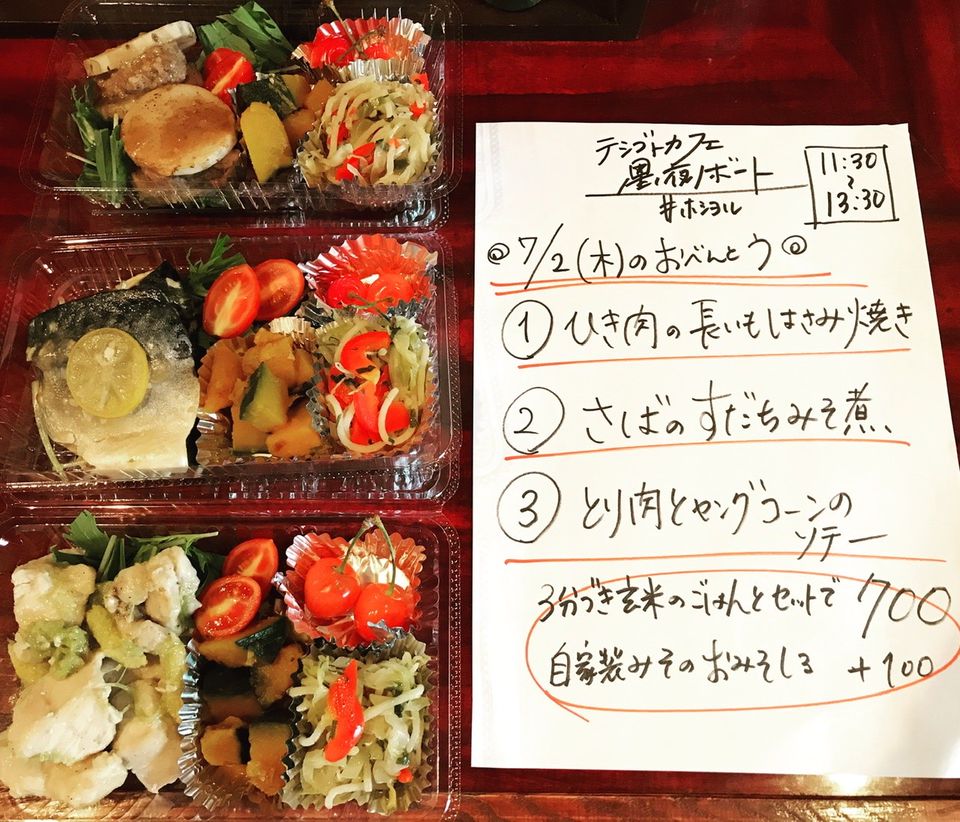 テシゴトカフェ
ノボート
#ホシヨル
11:30
~
13:30
◎7/2(木)のおべんとう◎
① ひき肉の長いもはさみ焼き
② さばのすだちみそ煮
③ とり肉とヤングコーンの
ソテー
3分づき玄米のごはんとセットで 700
自家製みそのおみそしる +100